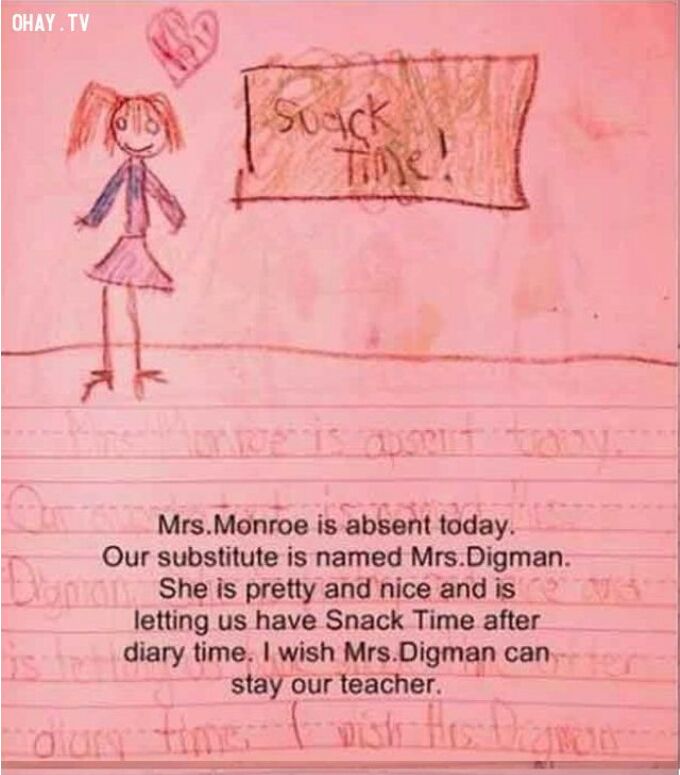 OHAY.TV
Snack
Time!
Mrs Monroe is absent today.
Our
Mrs.Monroe is absent today.
Our substitute is named Mrs.Digman.
She is pretty and nice and is
letting us have Snack Time after
diary time. I wish Mrs.Digman can
stay our teacher.
Digman and
is
diary time. I wish Mrs. Digman